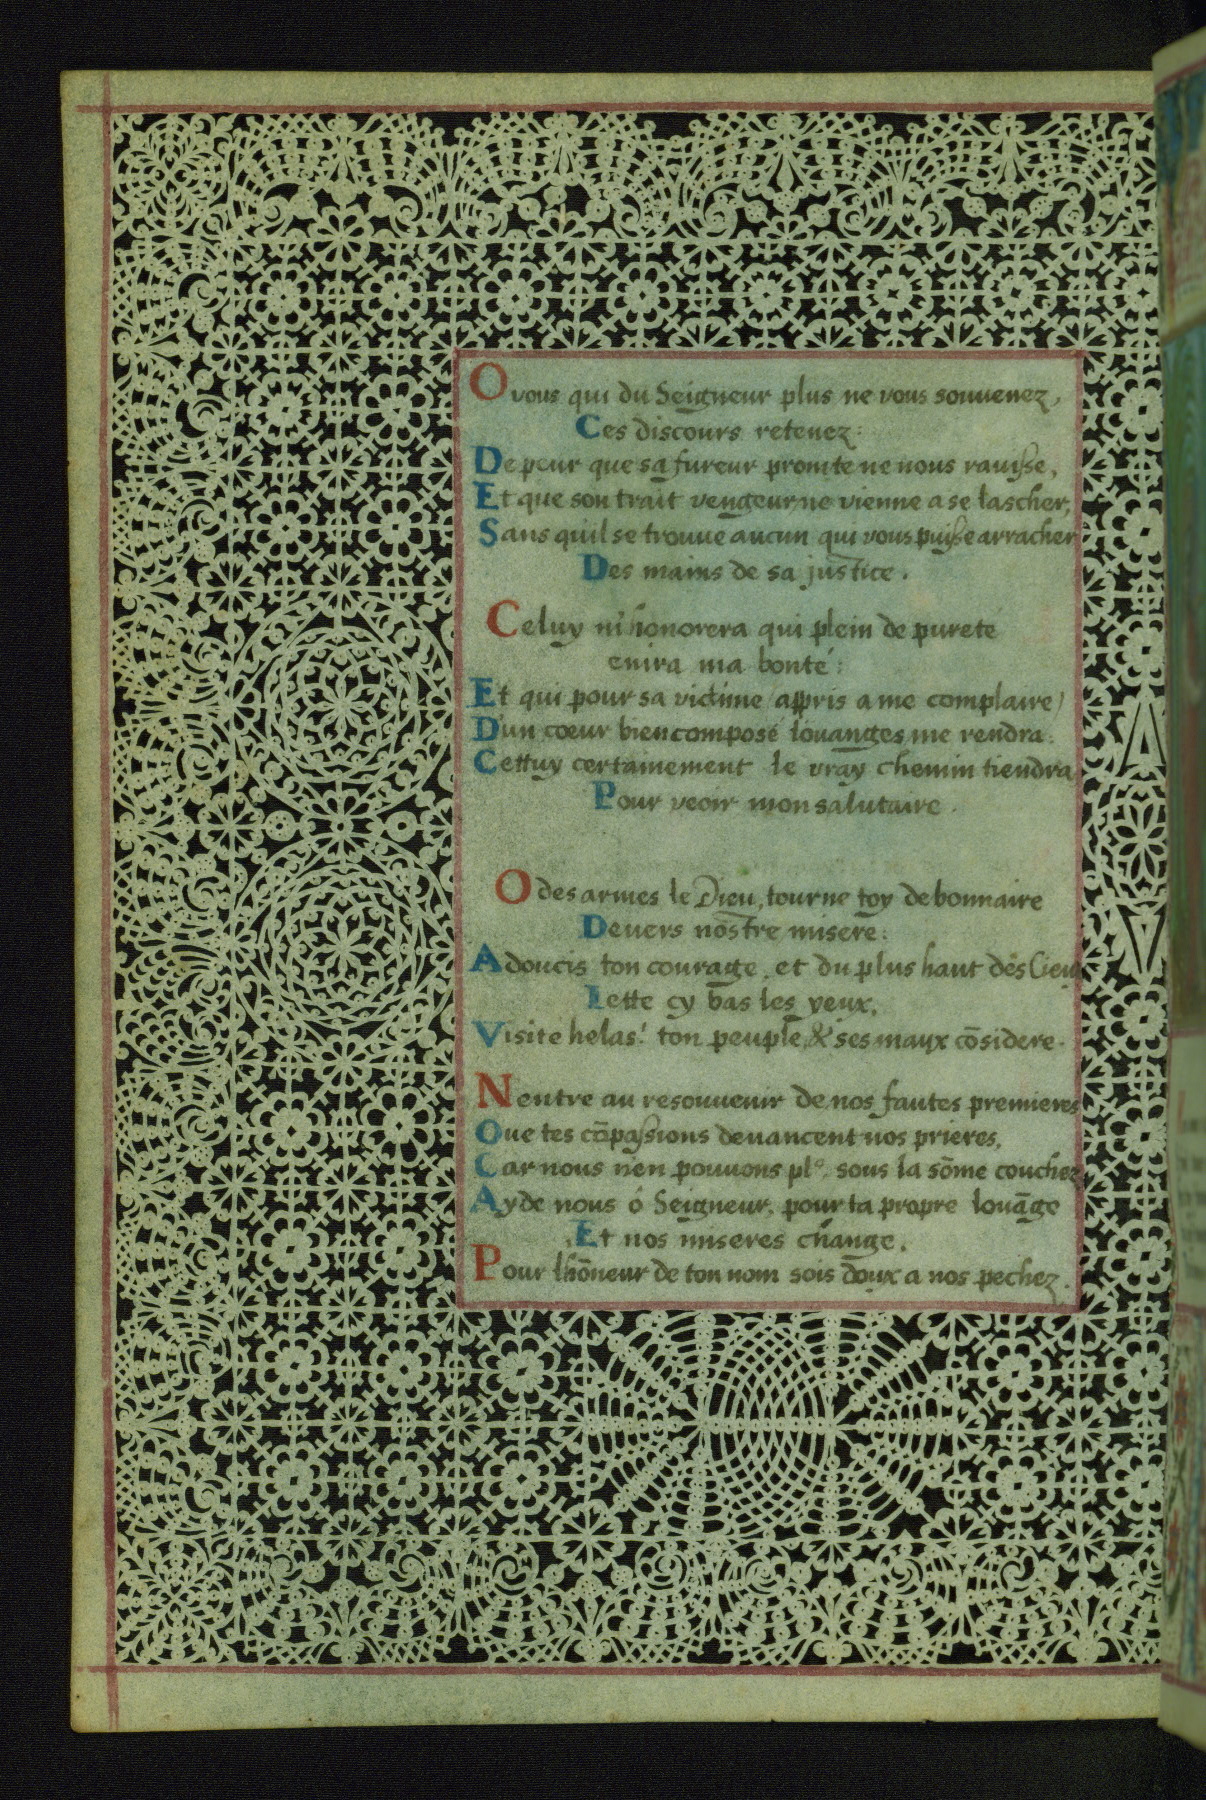 O vous qui du Seigneur plus ne vous souuenez,
Ces discours retenez:
De peur que sa fureur promte ne nous rauisse,
Et que son trait vengeur ne vienne a se lascher,
Sans quil se trouue aucun qui vous puisse arracher
Des mains de sa justice.
Celuy m'honorera qui plein de pureté
enira ma bonté:
Et qui pour sa victime (appris a me complaire)
D'un cœur bien composé louanges me rendra:
Cettuy certainement le vray chemin tiendra
Pour veoir mon salutaire.
O des armes le Dieu, tourne toy debonnaire
Deuers nostre misere:
Adoucis ton courage, et du plus haut des Cieux
Iette cy bas les yeux,
Visite helas! ton peuple, & ses maux cōsidere.
N'entre au resouuenir de nos fautes premieres
Que tes cōpassions deuancent nos prieres,
Car nous n'en pouuons plꝰ sous la sōme couchez
Ayde nous ó Seigneur, pour ta propre louāge
Et nos miseres change.
Pour l'hōneur de ton nom sois doux a nos pechez.